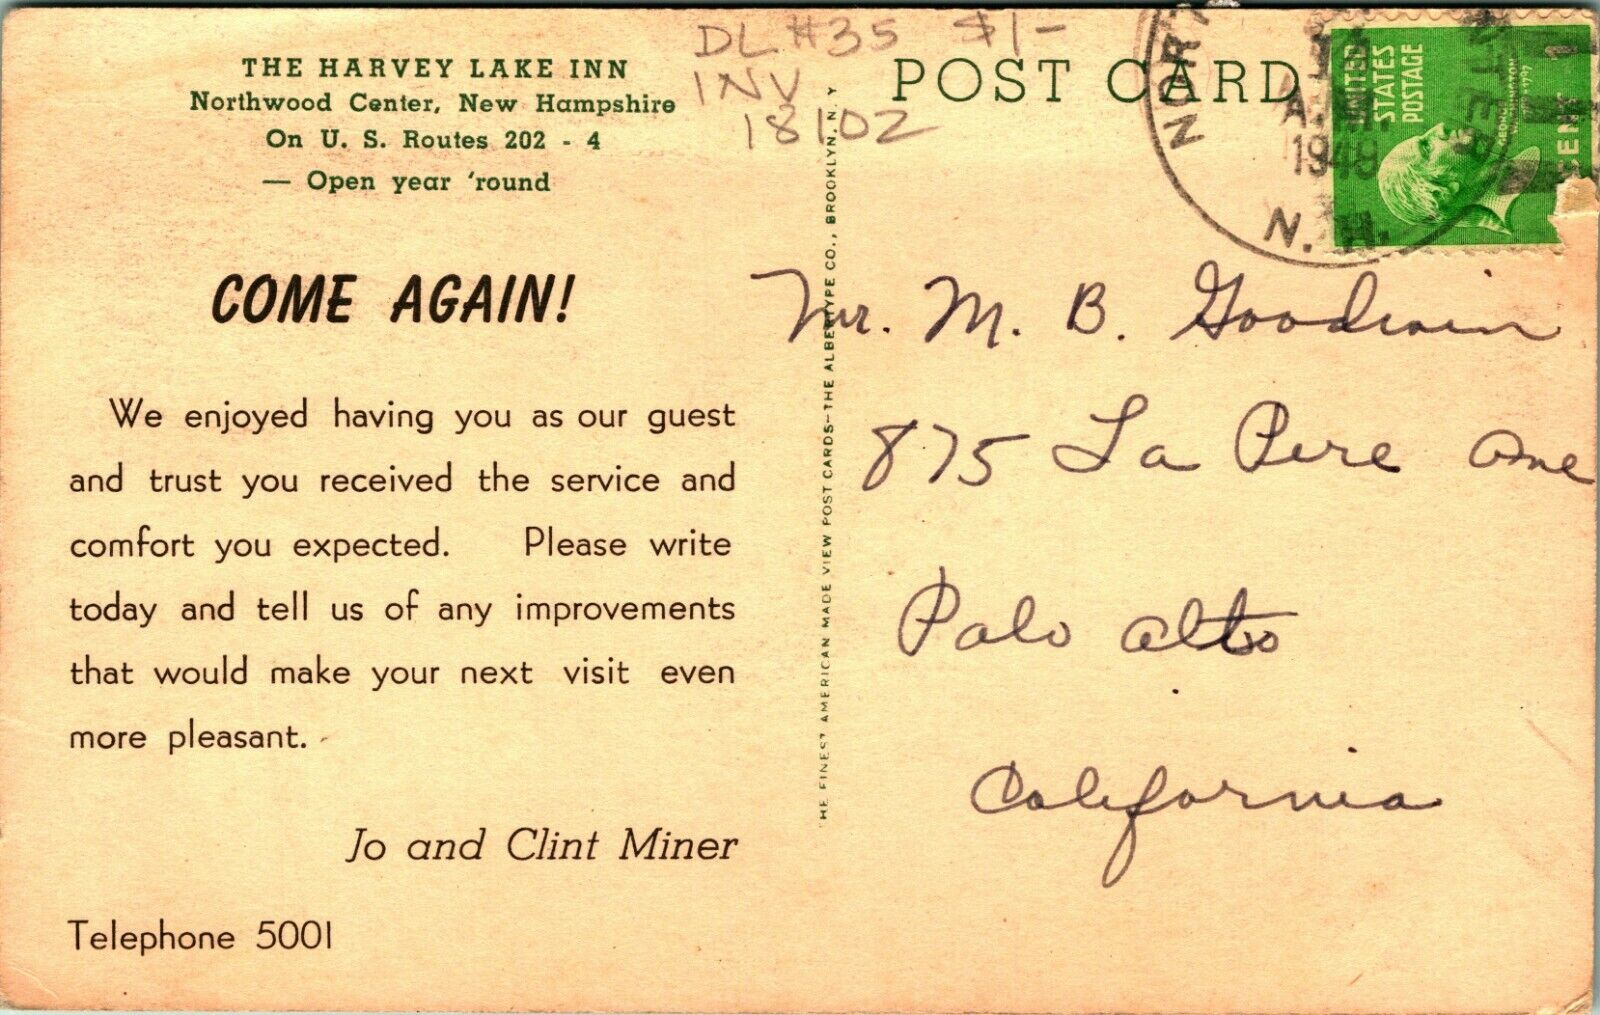 THE HARVEY LAKE INN
Northwood Center, New Hampshire
On U. S. Routes 202 - 4
— Open year 'round
COME AGAIN!
We enjoyed having you as our guest
and trust you received the service and
comfort you expected. Please write
today and tell us of any improvements
that would make your next visit even
more pleasant.
Jo and Clint Miner
Telephone 5001
DL #35 $1-
INV
18102
HE FINEST AMERICAN MADE VIEW POST CARDS—THE ALBERTYPE CO., BROOKLYN, N. Y
POST CARD
A.M.
1949
N. H.
UNITED
STATES
POSTAGE
1
CENT
Mr. M. B. Goodwin
875 La Pere Ave
Palo Alto
California